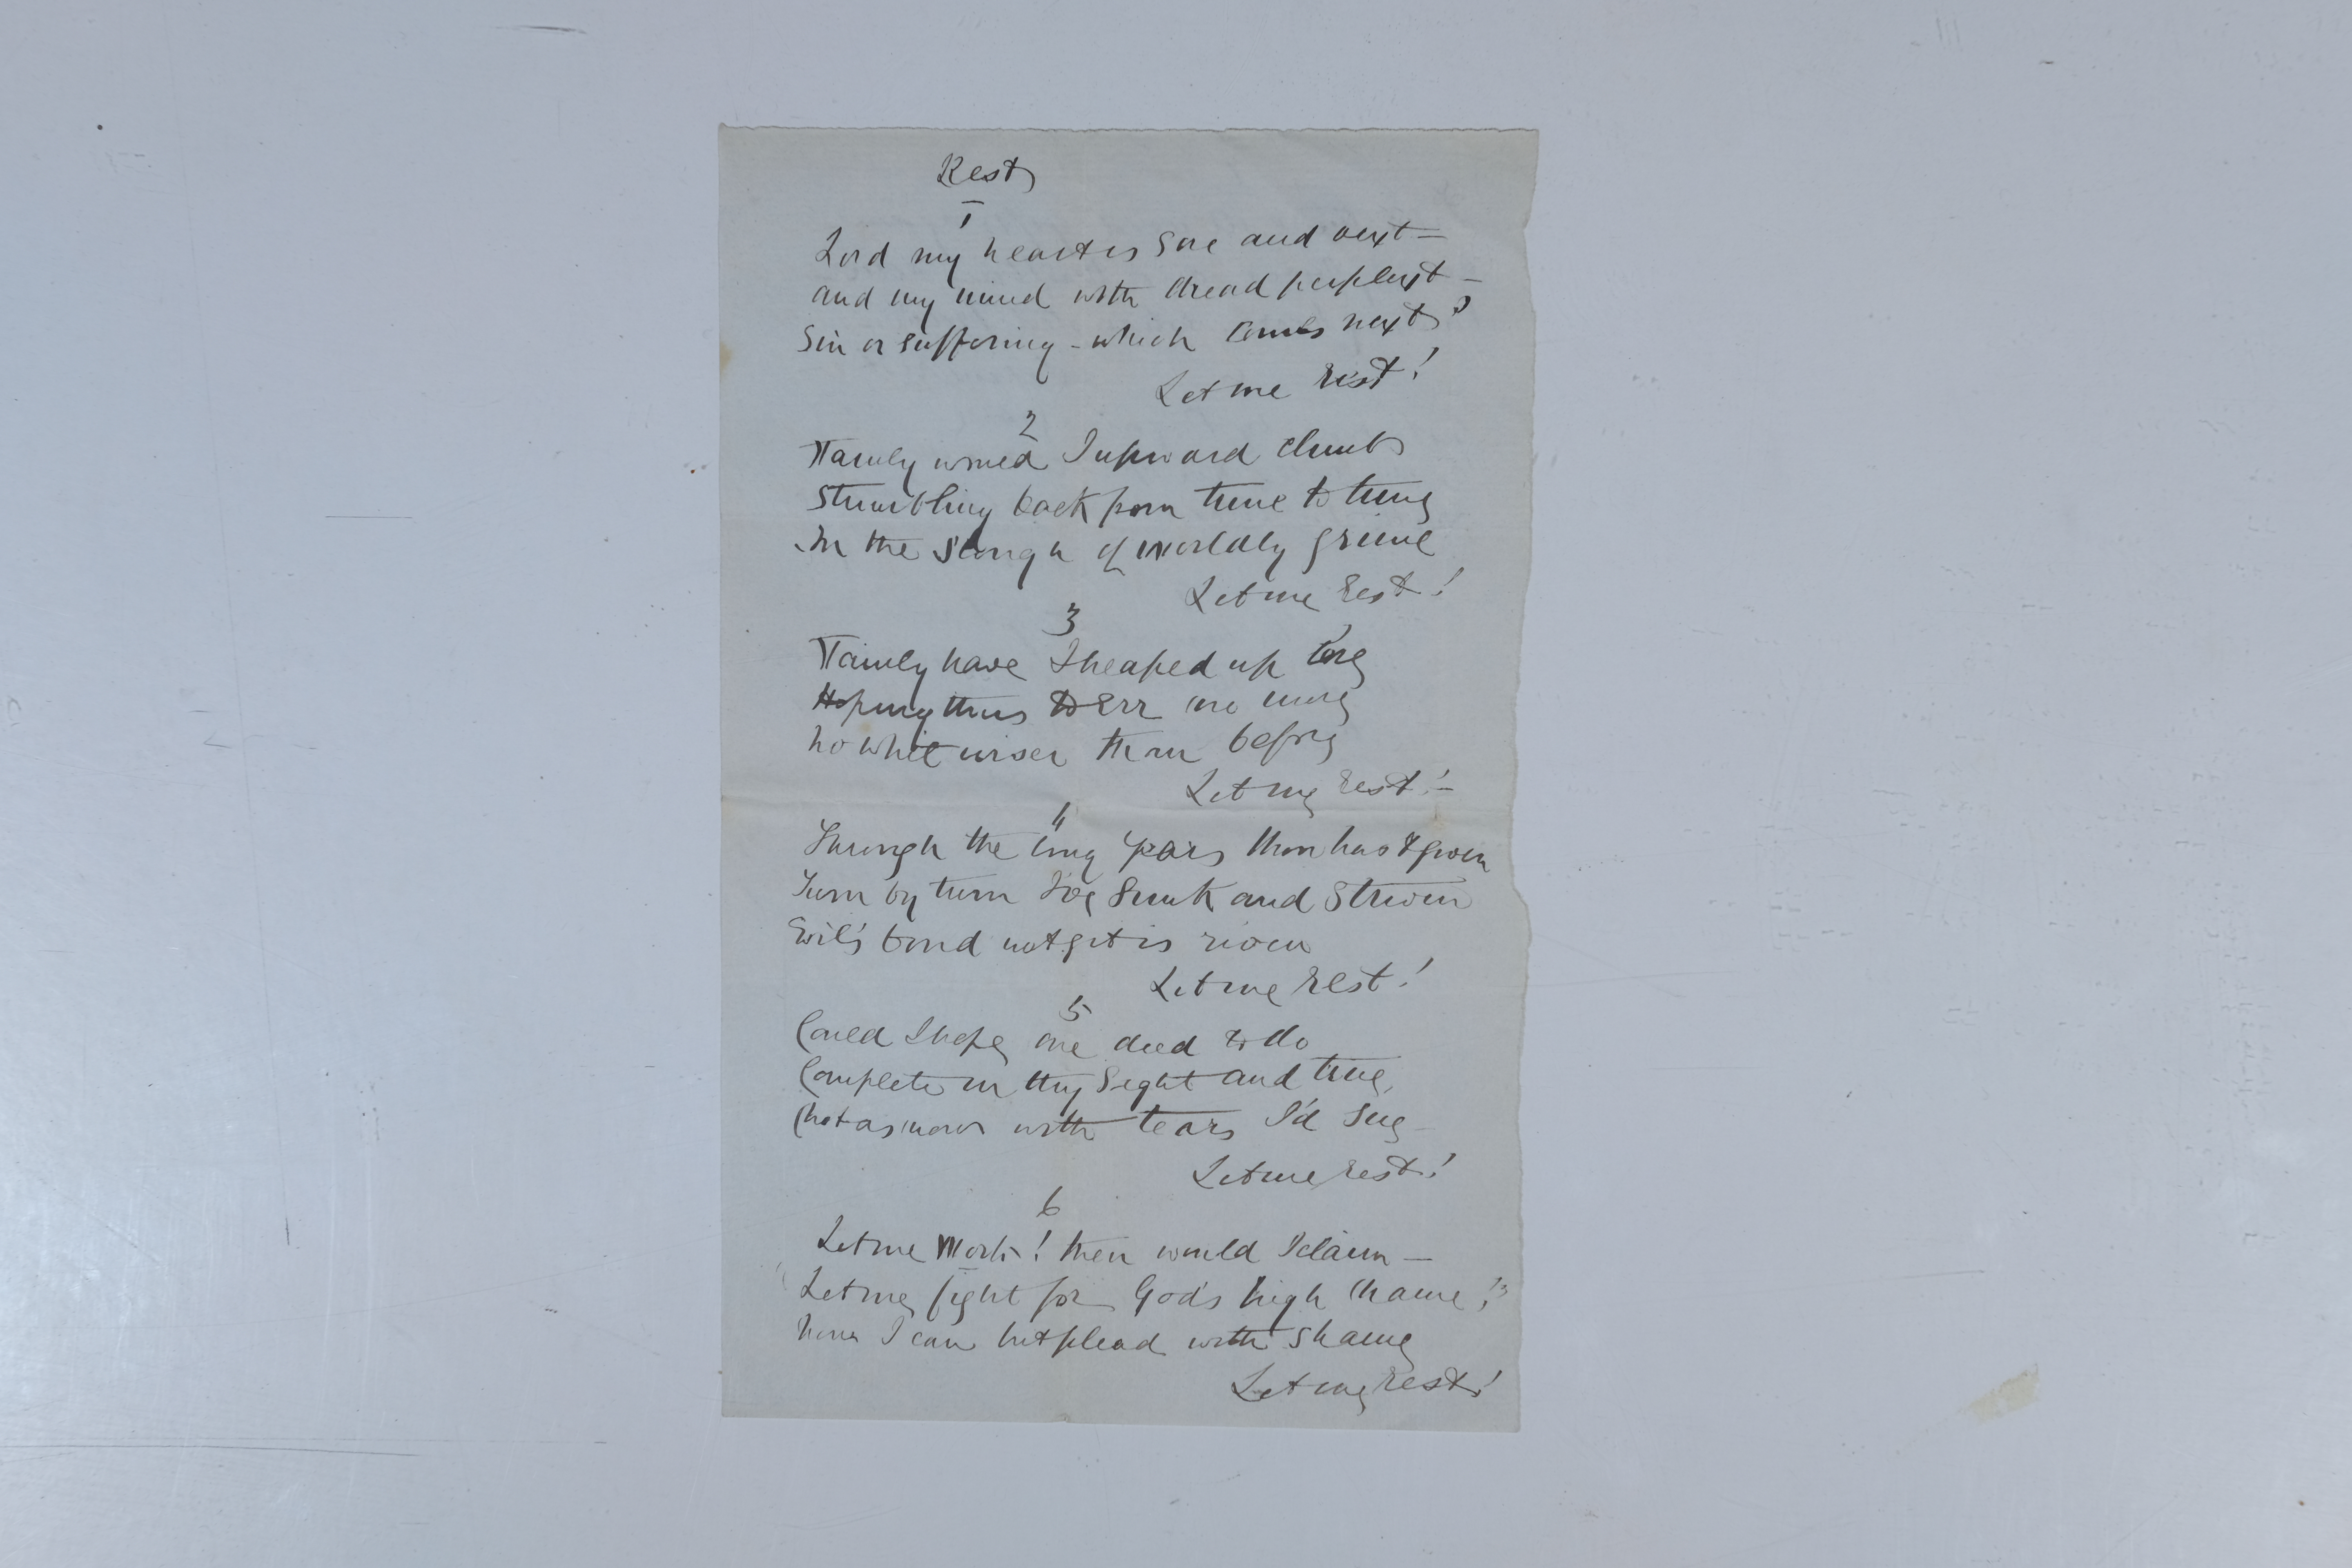 Rest
1
Lord my heart is sore and vext —
and my mind with dread perplext —
Sin or suffering - which comes next?
Let me rest!
2
Vainly would I upward climb
Stumbling back from time to time
In the slough of worldly grime
Let me rest!
3
Vainly have I heaped up lore
Hoping thus to err no more
no whit wiser than before
Let me rest! —
4
Through the long years thou hast given
Turn by turn I've sunk and striven
Evil's bond not yet is riven
Let me rest!
5
Could I hope one deed to do
Complete in thy sight and true,
(not as now with tears I'd sue —
Let me rest!
6
Let me work! then would I claim —
Let me fight for God's high name!"
now I can but plead with shame
Let me rest!